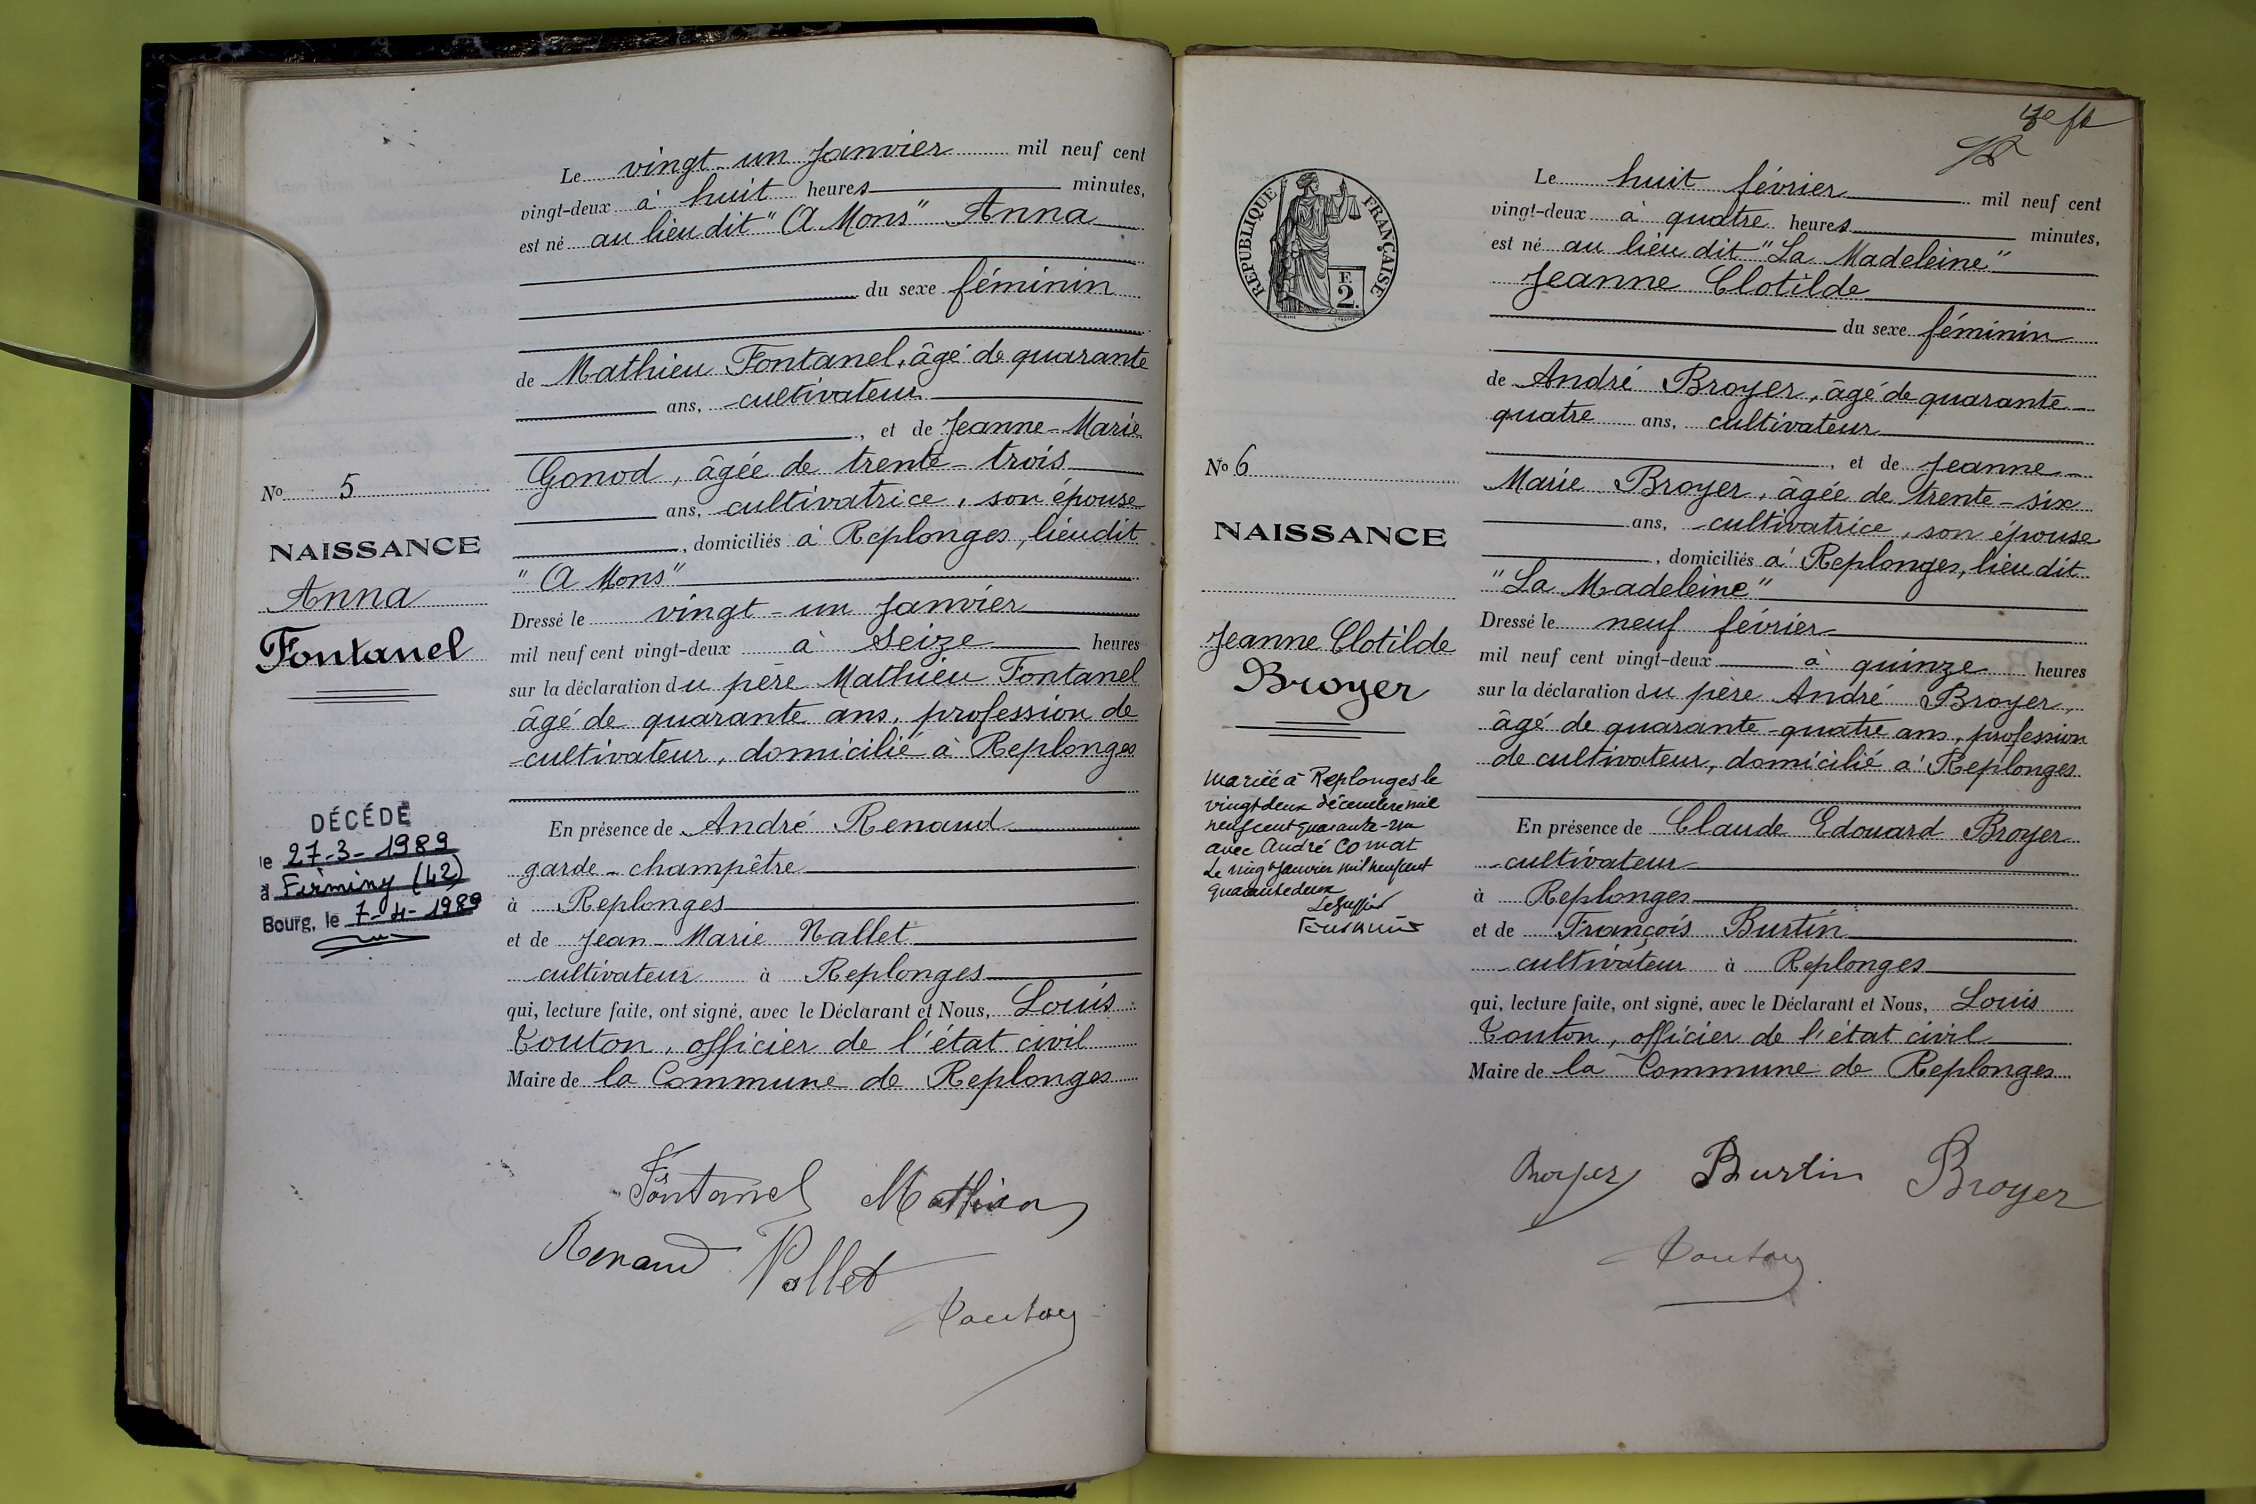 Le vingt-un Janvier mil neuf cent
vingt-deux à huit heures minutes,
est né au lieu dit "A Mons" Anna
du sexe féminin
de Mathieu Fontanel, âgé de quarante
ans, cultivateur
, et de Jeanne-Marie
Gonod, âgée de trente-trois
ans, cultivatrice, son épouse
, domiciliés à Replonges, lieu dit
"A Mons"
Dressé le vingt-un Janvier
mil neuf cent vingt-deux à seize heures
sur la déclaration du père Mathieu Fontanel
âgé de quarante ans, profession de
cultivateur, domicilié à Replonges
En présence de André Renaud
garde-champêtre
à Replonges
et de Jean-Marie Nallet
cultivateur à Replonges
qui, lecture faite, ont signé, avec le Déclarant et Nous, Louis
Touton, officier de l'état civil
Maire de la Commune de Replonges
Fontanel Mathieu
Renaud Nallet
Touton
No 5
NAISSANCE
Anna
Fontanel
DÉCÉDÉ
le 27-3-1989
à Firminy (42)
Bourg, le 7-4-1989
RÉPUBLIQUE FRANÇAISE
F.
2.
No 6
NAISSANCE
Jeanne Clotilde
Broyer
mariée à Replonges le
vingt deux décembre mil
neuf cent quarante-un
avec André Comat
Le vingt Janvier mil neuf cent
quarante deux
Le Greffier
Le huit février mil neuf cent
vingt-deux à quatre heures minutes,
est né au lieu dit "La Madeleine"
Jeanne Clotilde
du sexe féminin
de André Broyer, âgé de quarante-
quatre ans, cultivateur
, et de Jeanne-
Marie Broyer, âgée de trente-six
ans, cultivatrice, son épouse
, domiciliés à Replonges, lieu dit
"La Madeleine"
Dressé le neuf février
mil neuf cent vingt-deux à quinze heures
sur la déclaration du père André Broyer,
âgé de quarante-quatre ans, profession
de cultivateur, domicilié à Replonges
En présence de Claude Edouard Broyer
cultivateur
à Replonges
et de François Burtin
cultivateur à Replonges
qui, lecture faite, ont signé, avec le Déclarant et Nous, Louis
Touton, officier de l'état civil
Maire de la Commune de Replonges
Broyer Burtin Broyer
Touton